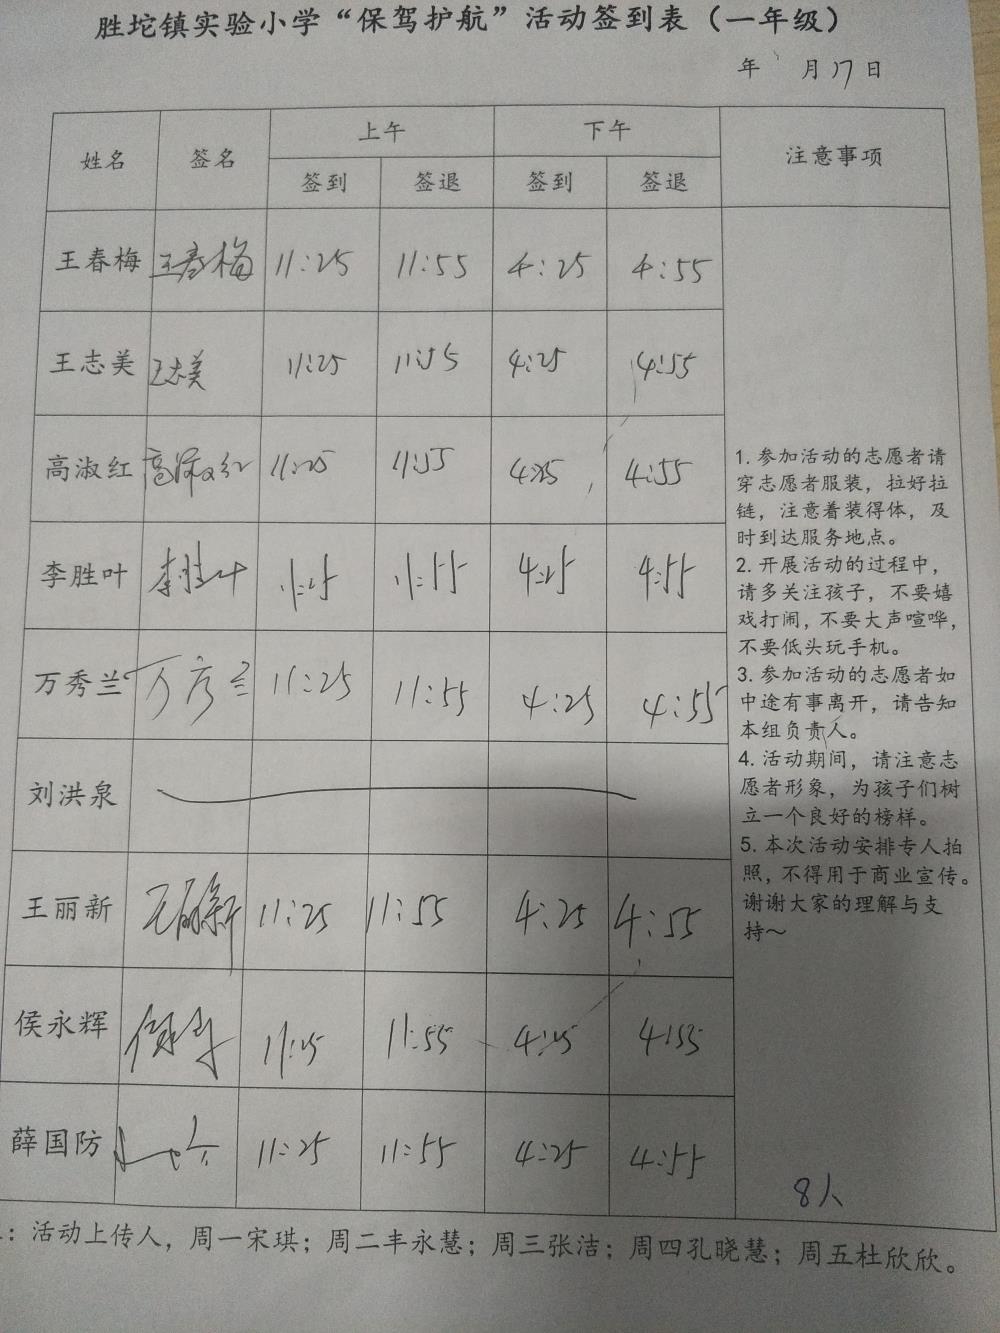 胜坨镇实验小学“保驾护航”活动签到表（一年级）
年 月17日
姓名 签名 上午 下午 注意事项
签到 签退 签到 签退
王春梅 王春梅 11:25 11:55 4:25 4:55
王志美 王志美 11:25 11:55 4:25 4:55
高淑红 高淑红 11:25 11:55 4:25 4:55
李胜叶 李胜叶 11:25 11:55 4:25 4:55
万秀兰 万秀兰 11:25 11:55 4:25 4:55
刘洪泉
王丽新 王丽新 11:25 11:55 4:25 4:55
侯永辉 11:25 11:55 4:25 4:55
薛国防 11:25 11:55 4:25 4:55
1. 参加活动的志愿者请
穿志愿者服装，拉好拉
链，注意着装得体，及
时到达服务地点。
2. 开展活动的过程中，
请多关注孩子，不要嬉
戏打闹，不要大声喧哗，
不要低头玩手机。
3. 参加活动的志愿者如
中途有事离开，请告知
本组负责人。
4. 活动期间，请注意志
愿者形象，为孩子们树
立一个良好的榜样。
5. 本次活动安排专人拍
照，不得用于商业宣传。
谢谢大家的理解与支
持～
8人
：活动上传人，周一宋琪；周二丰永慧；周三张洁；周四孔晓慧；周五杜欣欣。